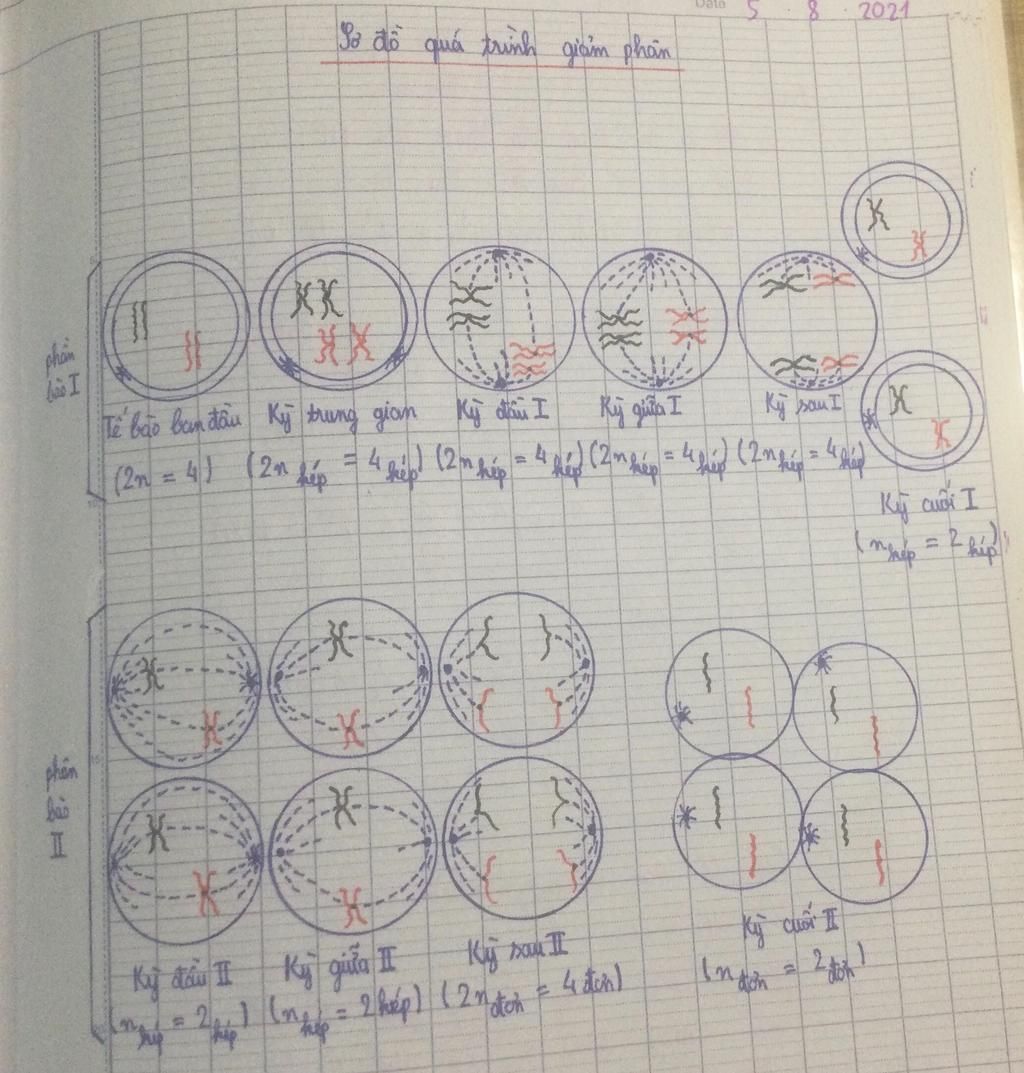 Date 5 . 8 . 2021
Sơ đồ quá trình giảm phân
phân
bào I
Tế bào ban đầu
(2n = 4)
Kỳ trung gian
(2n kép = 4 kép)
Kỳ đầu I
(2n kép = 4 kép)
Kỳ giữa I
(2n kép = 4 kép)
Kỳ sau I
(2n kép = 4 kép)
Kỳ cuối I
(n kép = 2 kép)
phân
bào
II
Kỳ đầu II
(n kép = 2 kép)
Kỳ giữa II
(n kép = 2 kép)
Kỳ sau II
(2n đơn = 4 đơn)
Kỳ cuối II
(n đơn = 2 đơn)